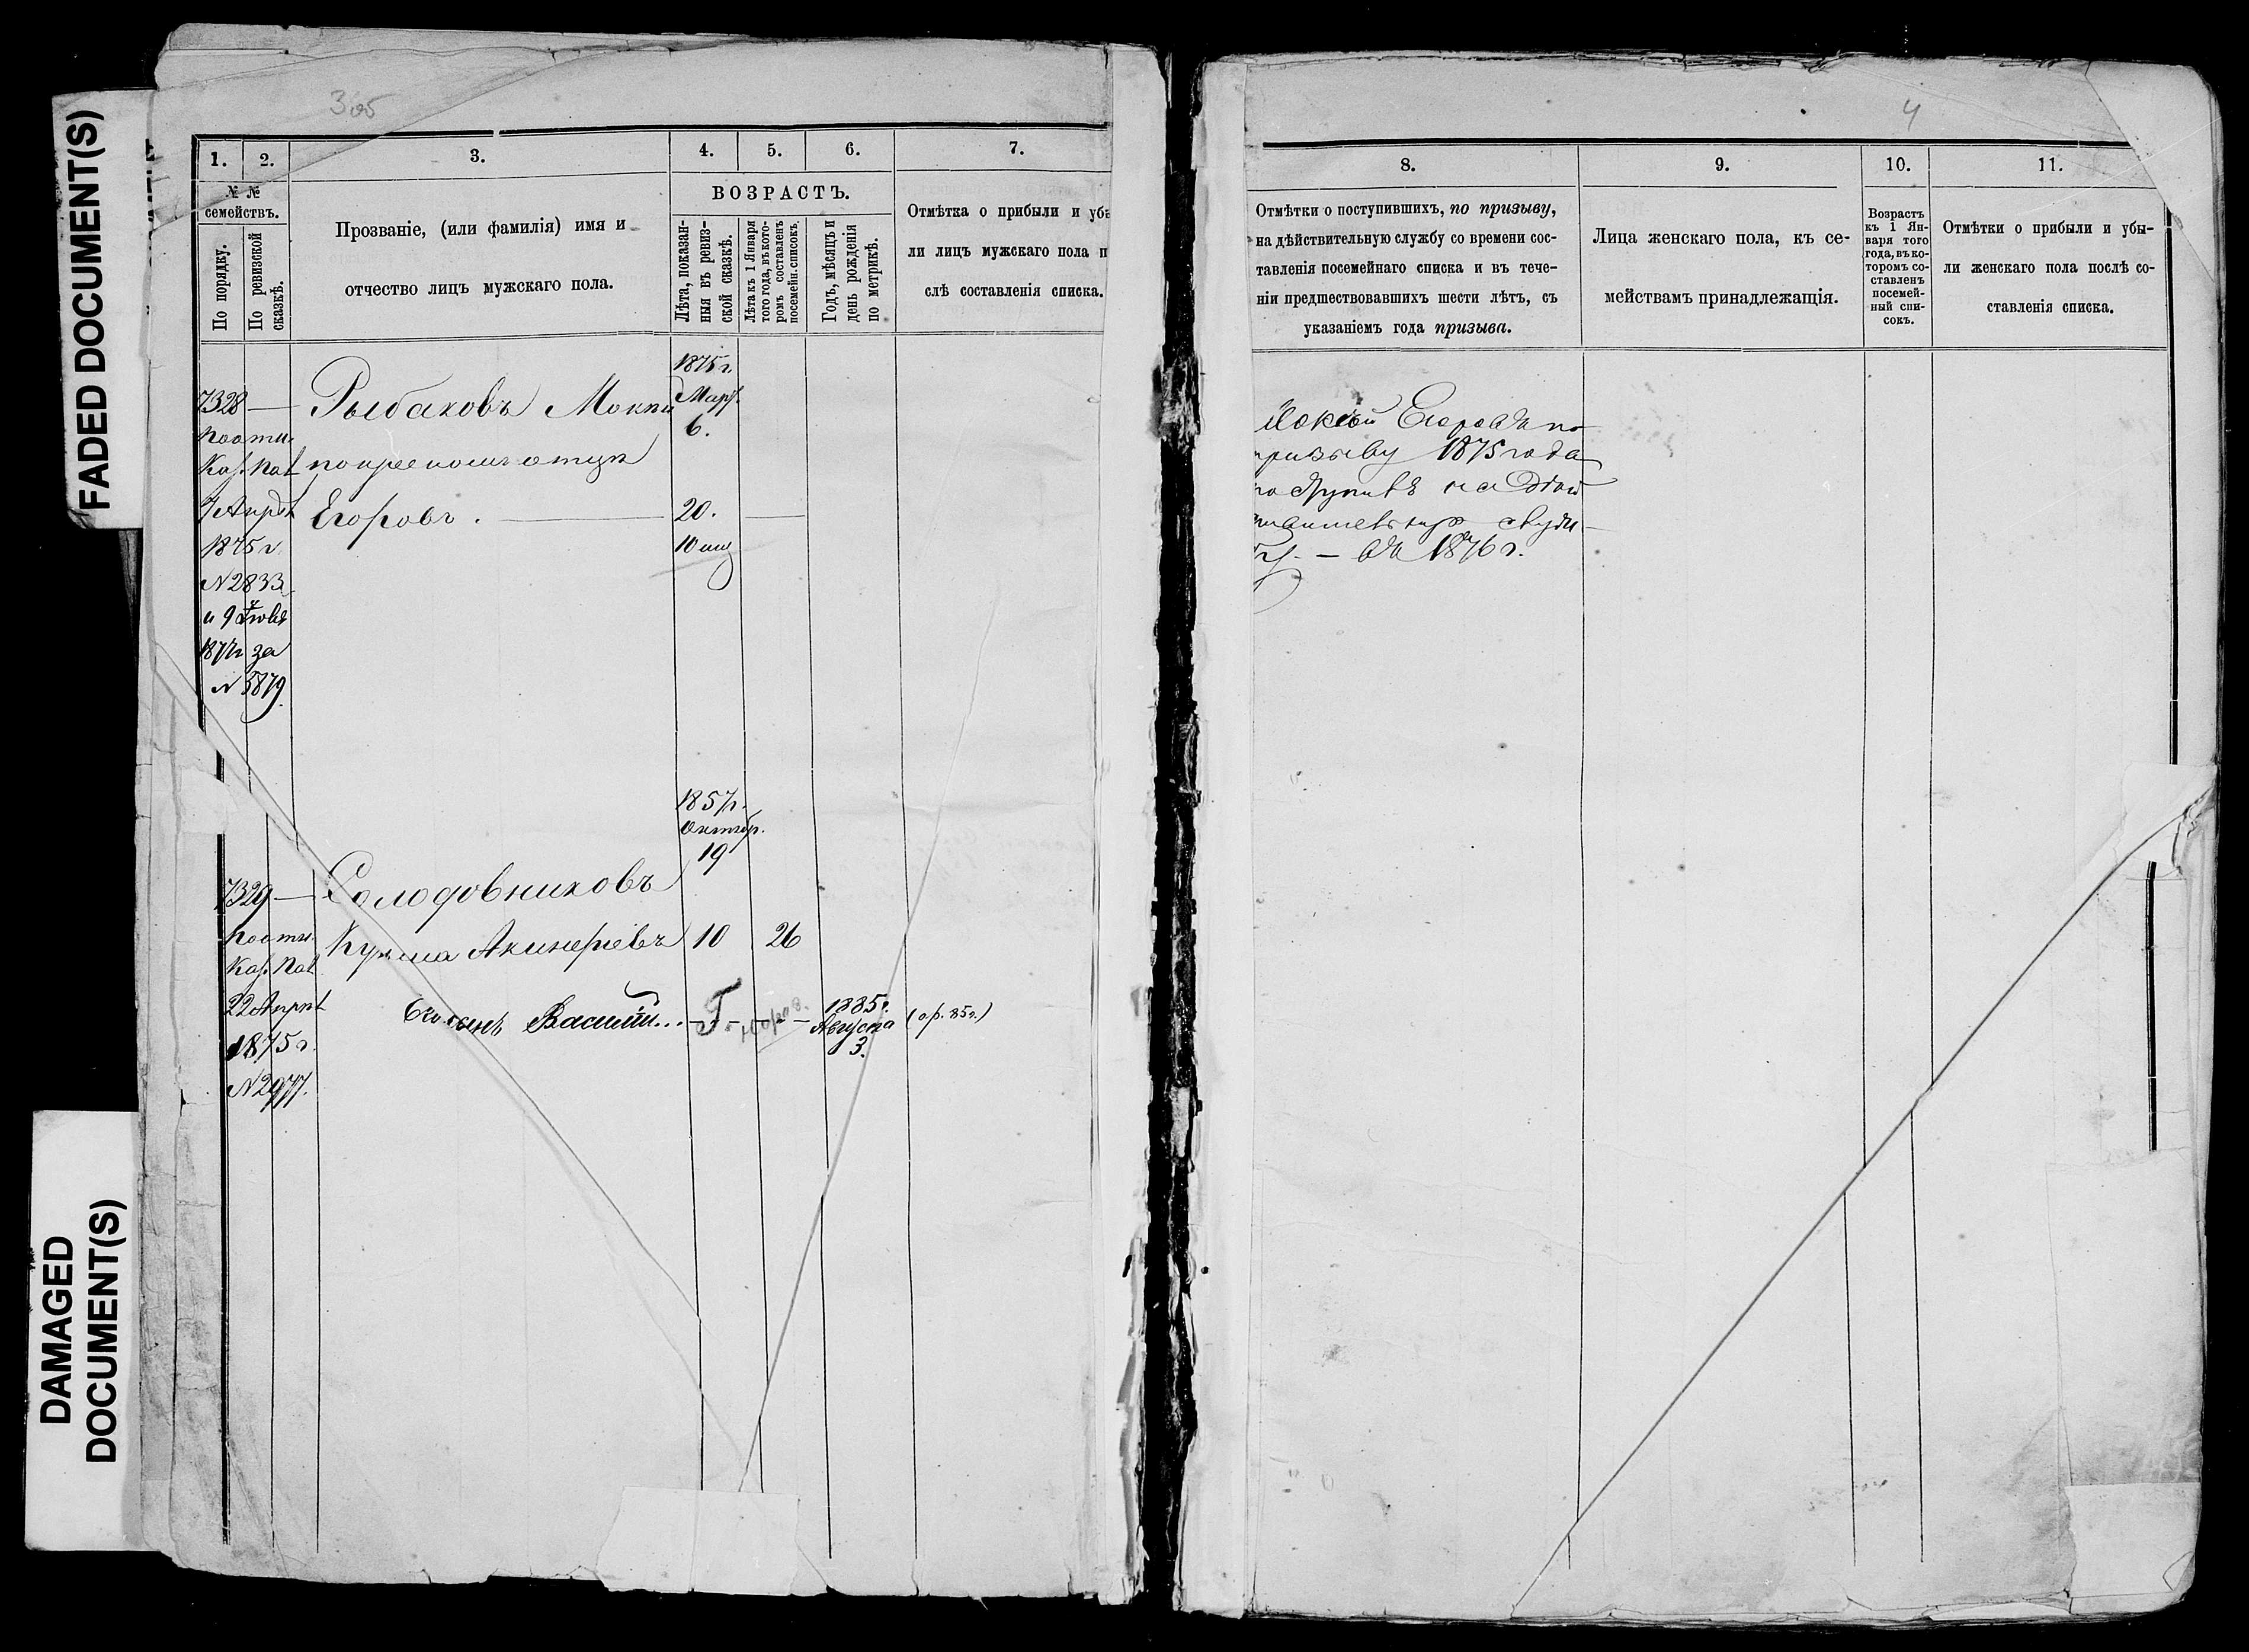 FADED DOCUMENT(S)
DAMAGED
DOCUMENT(S)
3об
1. 2. 3. 4. 5. 6. 7.
№ №
семействъ.
По порядку.
По ревизской
сказкѣ.
Прозваніе, (или фамилія) имя и
отчество лицъ мужскаго пола.
ВОЗРАСТЪ.
Лѣта, показан-
ныя въ ревиз-
ской сказкѣ.
Лѣта къ 1 Января
того года, въ кото-
ромъ составленъ
посемейн. списокъ.
Годъ, мѣсяцъ и
день рожденія
по метрикѣ.
Отмѣтка о прибыли и убы
ли лицъ мужскаго пола п
слѣ составленія списка.
1875 г.
Март.
6.
7328 — Рыбаковъ Моки
по крестному отцу
Егоровъ. — 20.
10 мц
Каз. Пал.
7 Апрѣл
1875 г.
№ 2833
и 9
187 г за
№ 5879.
1857 г.
Октябр.
19
7329 — Солодовниковъ
Кузьма Акинфіевъ 10 26
Каз. Пал.
22 Апрѣл
1875 г.
№ 2977.
Его сынъ Василій... 1885 г.
Августа
3.
(о.р. 85 г.)
4
8. 9. 10. 11.
Отмѣтки о поступившихъ, по призыву,
на дѣйствительную службу со времени сос-
тавленія посемейнаго списка и въ тече-
ніи предшествовавшихъ шести лѣтъ, съ
указаніемъ года призыва.
Лица женскаго пола, къ се-
мействамъ принадлежащія.
Возрастъ
къ 1 Ян-
варя того
года, въ ко-
торомъ со-
ставленъ
посемей-
ный спи-
сокъ.
Отмѣтки о прибыли и убы-
ли женскаго пола послѣ со-
ставленія списка.
Мокій Егоровъ по
призыву 1875 года
поступилъ на дѣй
ствительную служ
бу — въ 1876 г.